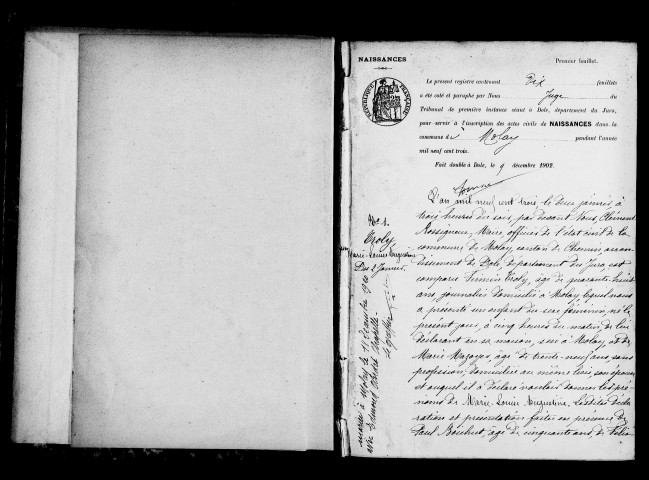 NAISSANCES
Premier feuillet.
Le présent registre contenant Dix feuillets
a été coté et paraphé par Nous Juge du
Tribunal de première instance séant à Dole, département du Jura,
pour servir à l'inscription des actes civils de NAISSANCES dans la
commune de Molay pendant l'année
mil neuf cent trois.
Fait double à Dole, le 9 décembre 1902.
RÉPUBLIQUE FRANÇAISE
No 1.
Troly
Marie-Louise Augustine
Du 2 Janvier.
marié à Molay le 11 décembre 1920
avec Edmond
L'an mil neuf cent trois, le deux janvier, à
trois heures du soir, par devant Nous, Clément
Rossigneux, Maire, officier de l'état civil de la
commune de Molay, canton de Chemin, arron-
dissement de Dole, département du Jura, est
comparu Firmin Troly, âgé de quarante-huit
ans, journalier, domicilié à Molay, lequel nous
a présenté un enfant du sexe féminin, né le
présent jour, à cinq heures du matin, de lui
déclarant en sa maison, sise à Molay, et de
Marie Mazoyer, âgée de trente-neuf ans, sans
profession, domiciliée au même lieu, son épouse
et auquel il a déclaré vouloir donner les pré-
noms de Marie-Louise Augustine. Lesdites décla-
ration et présentation faites en présence de
Paul Boichut, âgé de cinquante ans, de